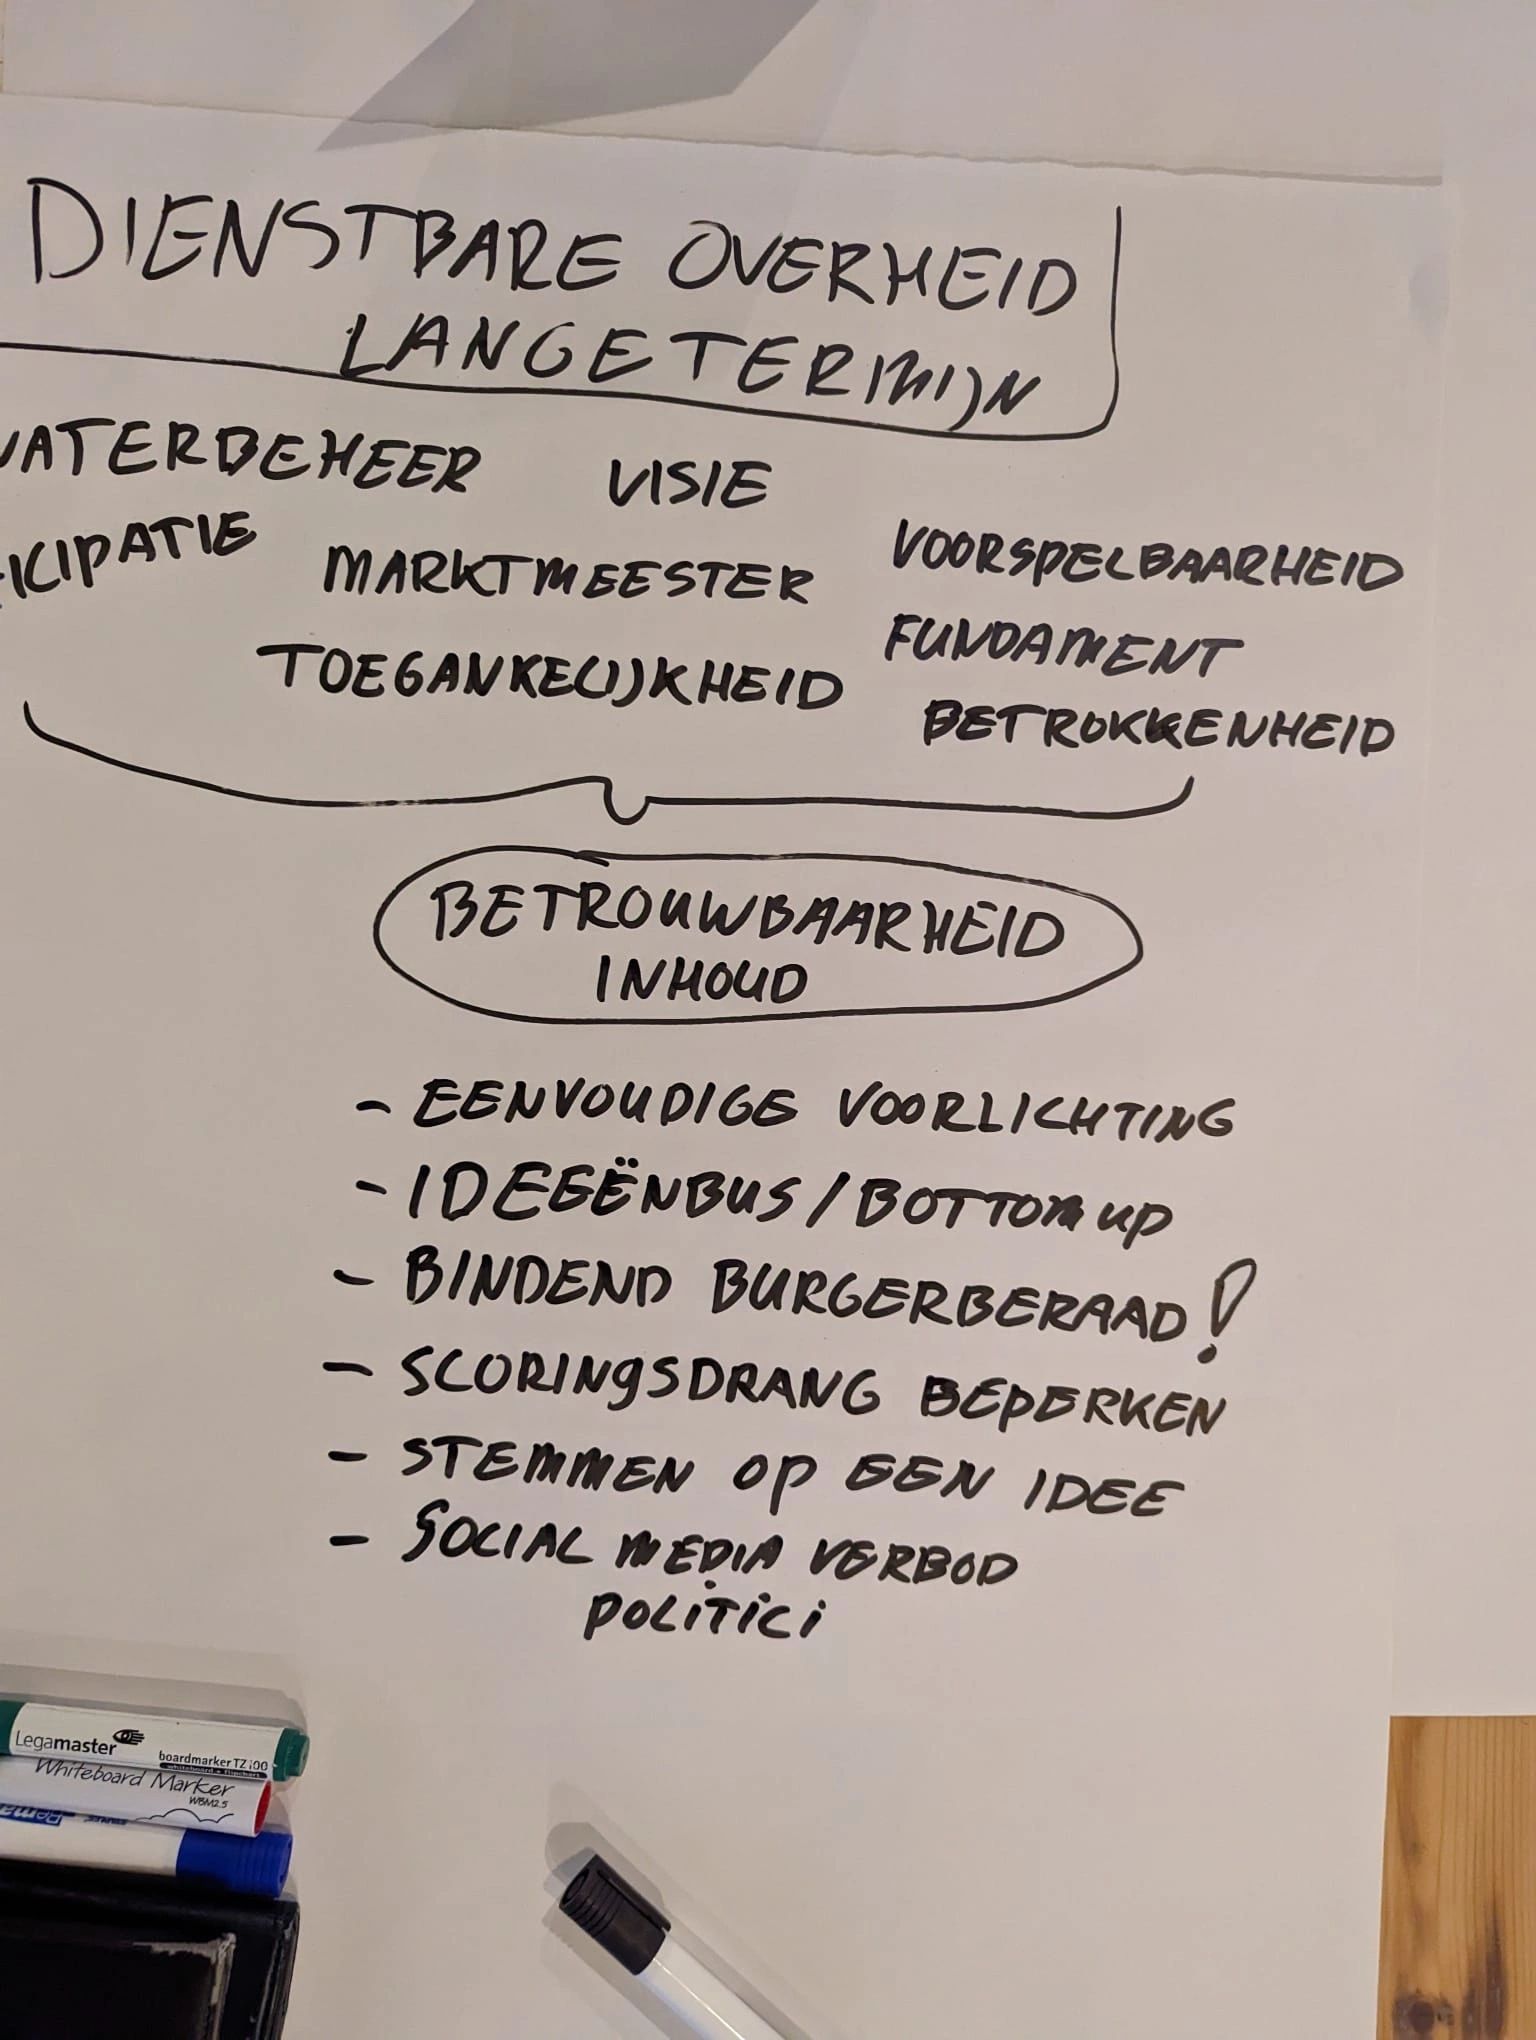 DIENSTBARE OVERHEID
LANGETERMIJN
WATERBEHEER VISIE
ICIPATIE MARKTMEESTER VOORSPELBAARHEID
TOEGANKELIJKHEID FUNDAMENT
BETROKKENHEID
BETROUWBAARHEID
INHOUD
- EENVOUDIGE VOORLICHTING
- IDEEËNBUS / BOTTOM UP
- BINDEND BURGERBERAAD!
- SCORINGSDRANG BEPERKEN
- STEMMEN OP EEN IDEE
- SOCIAL MEDIA VERBOD
POLITICI
Legamaster
boardmarker TZ 100
whiteboard + flipchart
Whiteboard Marker
WBM2.5